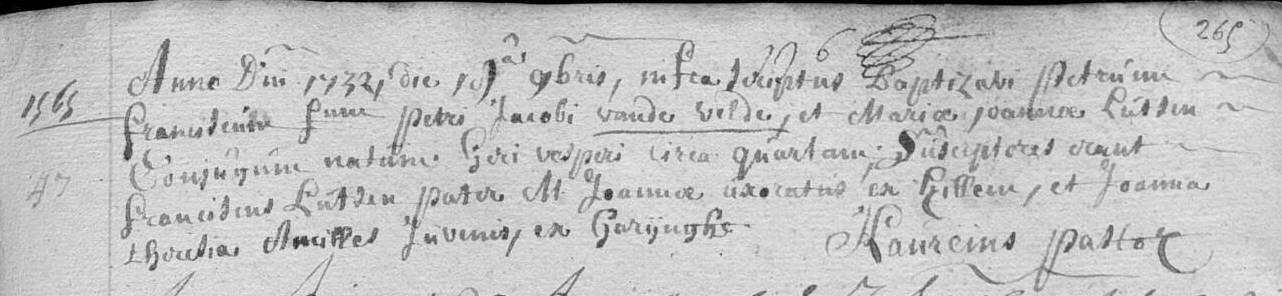 265
Anno Dni 1732, die 19a 9bris, infra scriptus Baptizavi Petrum
1565
Franciscum fum Petri Jacobi vande Velde, et Mariæ Joannæ Lutsen
Conjugum natum heri vesperi circa quartam; Susceptores erant
47
Franciscus Lutsen pater M Joannæ uxoratus ex hillem, et Joanna
theresia Juvenis, ex
pastor